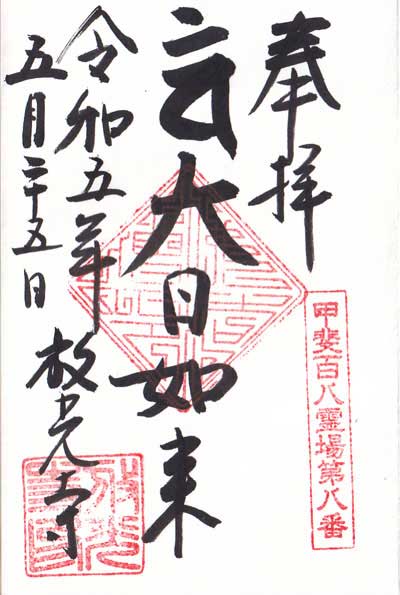 奉拝
甲斐百八霊場第八番
大日如来
令和五年
五月二十五日
放光寺